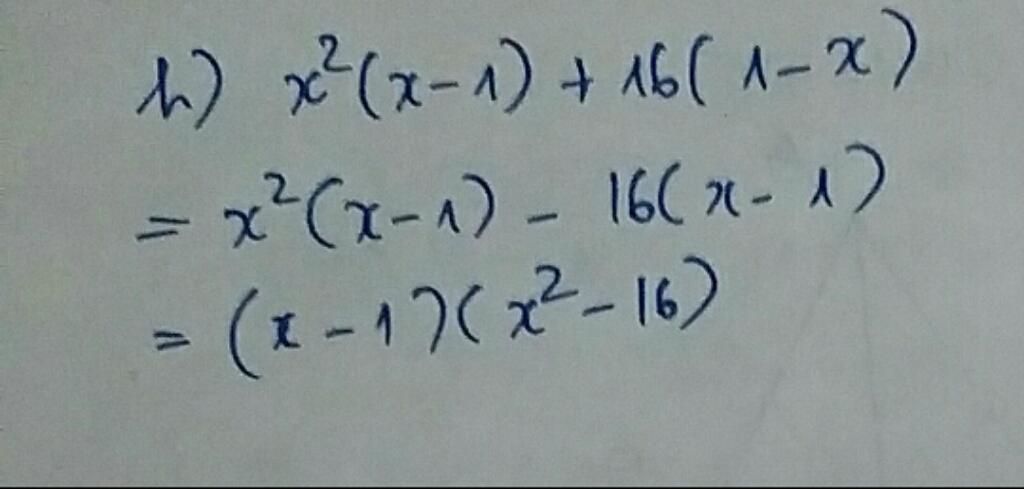 h) x²(x-1) + 16(1-x)
= x²(x-1) - 16(x-1)
= (x-1)(x²-16)